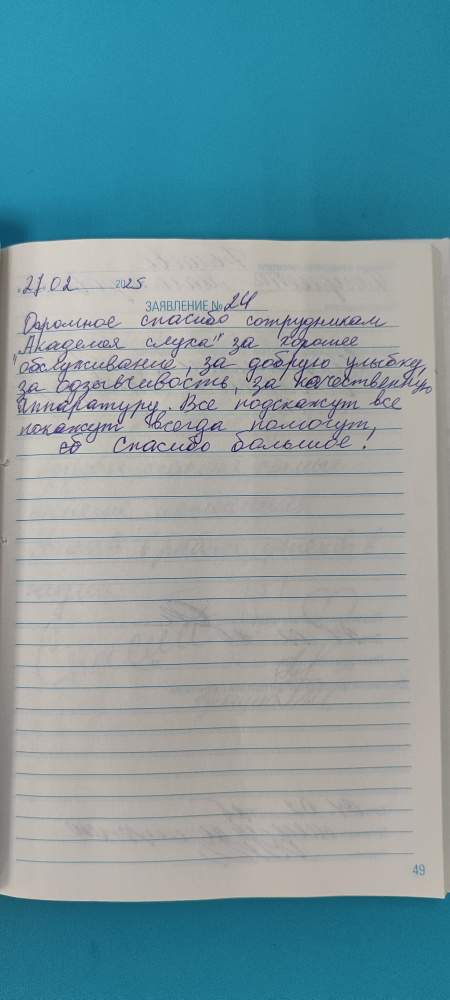 27.02 2025
ЗАЯВЛЕНИЕ № 24
Огромное спасибо сотрудникам
"Академоя слуха" за хорошее
обслуживание, за добрую улыбку,
за одзывчивость, за качественную
аппаратуру. Все подскажут все
покажут всегда помогут,
Спасибо большое!
49